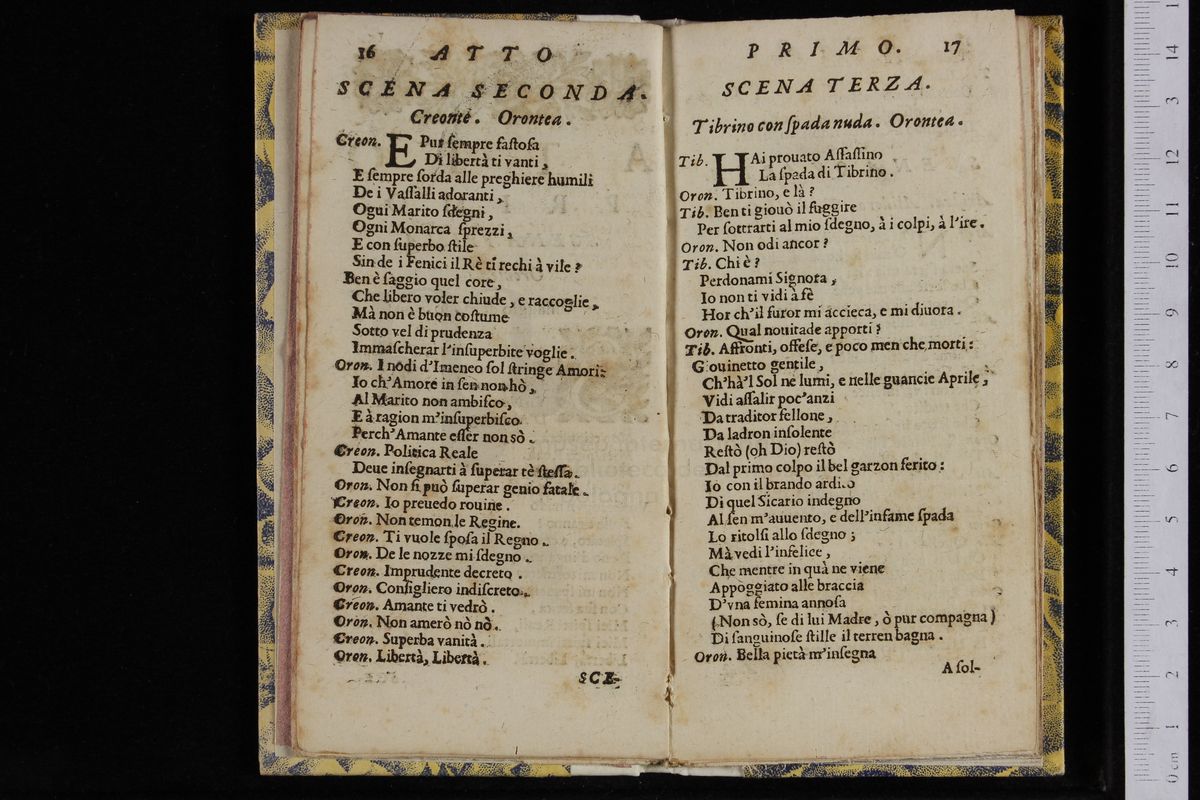 16 ATTO
SCENA SECONDA.
Creonte. Orontea.
Creon. E Pur ſempre faſtoſa
Di libertà ti vanti,
E ſempre ſorda alle preghiere humili
De i Vaſſalli adoranti,
Ogui Marito ſdegni,
Ogni Monarca ſprezzi,
E con ſuperbo ſtile
Sin de i Fenici il Rè ti rechi à vile?
Ben è ſaggio quel core,
Che libero voler chiude, e raccoglie,
Mà non è buon coſtume
Sotto vel di prudenza
Immaſcherar l'inſuperbite voglie.
Oron. I nodi d'Imeneo ſol ſtringe Amori:
Io ch'Amore in ſen non hò,
Al Marito non ambiſco,
E à ragion m'inſuperbiſco.
Perch'Amante eſſer non sò.
Creon. Politica Reale
Deue inſegnarti à ſuperar tè ſteſſa.
Oron. Non ſi può ſuperar genio fatale.
Creon. Io preuedo rouine.
Oron. Non temon le Regine.
Creon. Ti vuole ſpoſa il Regno.
Oron. De le nozze mi ſdegno.
Creon. Imprudente decreto.
Oron. Conſigliero indiſcreto.
Creon. Amante ti vedrò.
Oron. Non amerò nò nò.
Creon. Superba vanità.
Oron. Libertà, Libertà.
SCE-
PRIMO. 17
SCENA TERZA.
Tibrino con ſpada nuda. Orontea.
Tib. HAi prouato Aſſaſſino
La ſpada di Tibrino.
Oron. Tibrino, e là?
Tib. Ben ti giouò il fuggire
Per ſottrarti al mio ſdegno, à i colpi, à l'ire.
Oron. Non odi ancor?
Tib. Chi è?
Perdonami Signora,
Io non ti vidi à fè
Hor ch'il furor mi accieca, e mi diuora.
Oron. Qual nouitade apporti?
Tib. Affronti, offeſe, e poco men che morti:
Giouinetto gentile,
Ch'hà'l Sol ne lumi, e nelle guancie Aprile,
Vidi aſſalir poc'anzi
Da traditor fellone,
Da ladron inſolente
Reſtò (oh Dio) reſtò
Dal primo colpo il bel garzon ferito:
Io con il brando ardito
Di quel Sicario indegno
Al ſen m'auuento, e dell'infame ſpada
Lo ritolſi allo ſdegno;
Mà vedi l'infelice,
Che mentre in quà ne viene
Appoggiato alle braccia
D'vna femina annoſa
(Non sò, ſe di lui Madre, ò pur compagna)
Di ſanguinoſe ſtille il terren bagna.
Oron. Bella pietà m'inſegna
A ſol-
14
13
12
11
10
9
8
7
6
5
4
3
2
1
0 cm